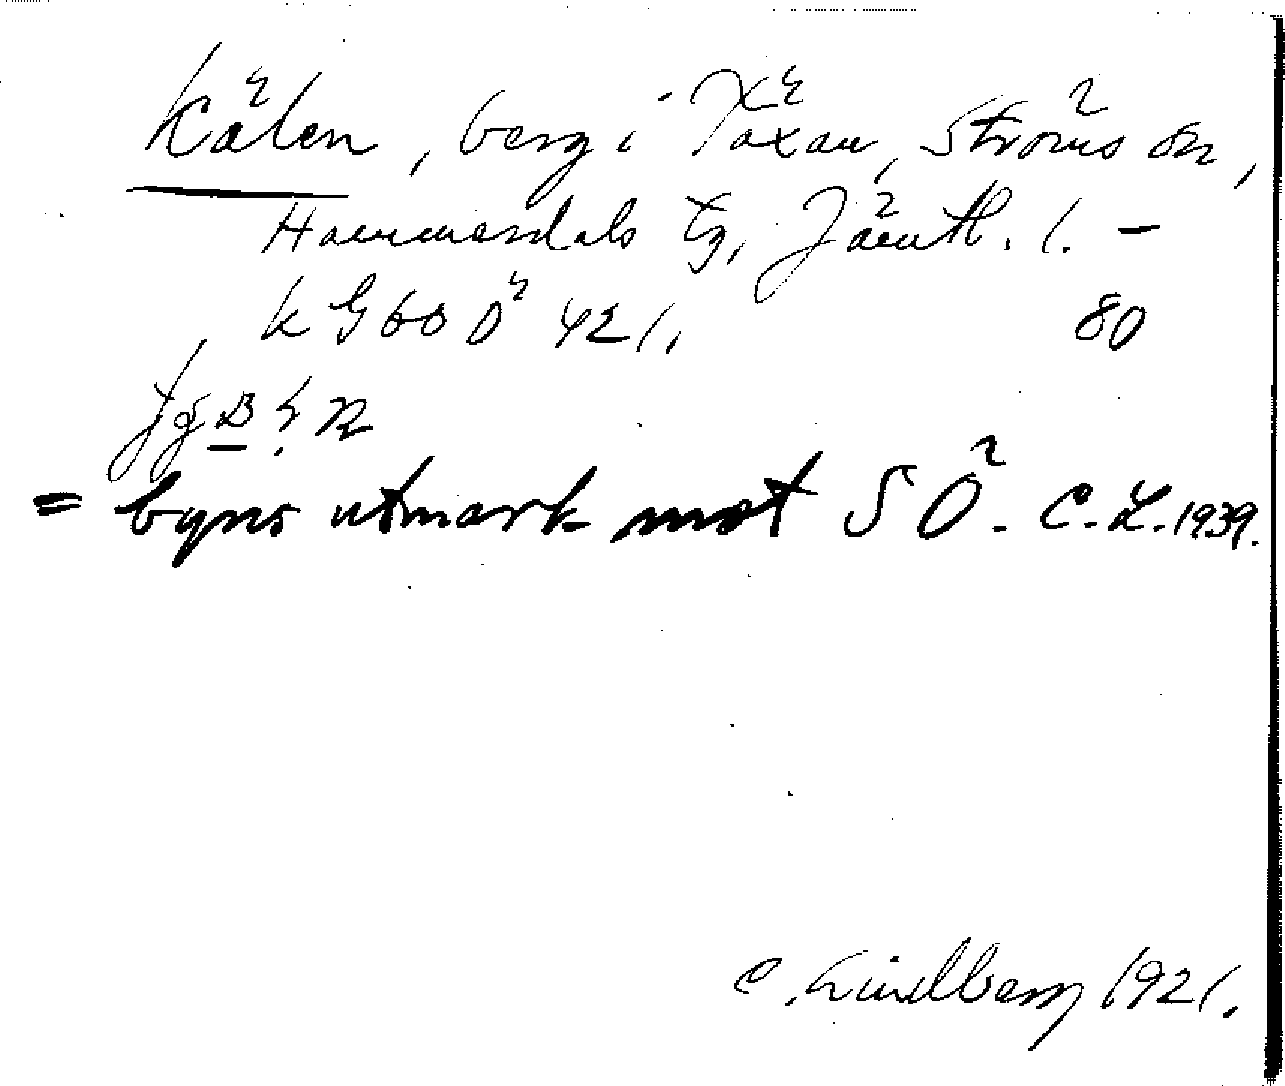 Kälen, berg i Täxan, Ströms sn,
Hammerdals tg, Jämtl. l. –
k G 60 Ö 42 l, 80
= byns utmark mot S Ö. C.L. 1939.
C. Lindberg 1921.